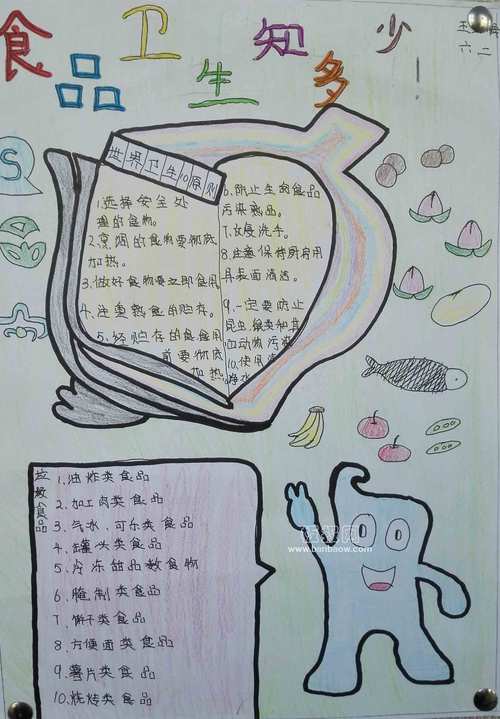 食品卫生知多少!
六二
世界卫生10原则
1.选择安全处
理的食物。
2.烹调的食物要彻底
加热。
3.做好食物要立即食用
4.注重熟食的贮存。
5.经贮存的食食用
前要彻底
加热
6.防止生的食品
污染熟品。
7.反复洗手。
8.注意保持厨房用
具表面清洁。
9.一定要防止
昆虫鼠类和其
他动物污染
10.使用
净水
S
垃圾食品
1.油炸类食品
2.加工肉类食品
3.汽水、可乐类食品
4.罐头类食品
5.冷冻甜品类食物
6.腌制类食品
7.饼干类食品
8.方便面类食品
9.薯片类食品
10.烧烤类食品
www.banbaow.com